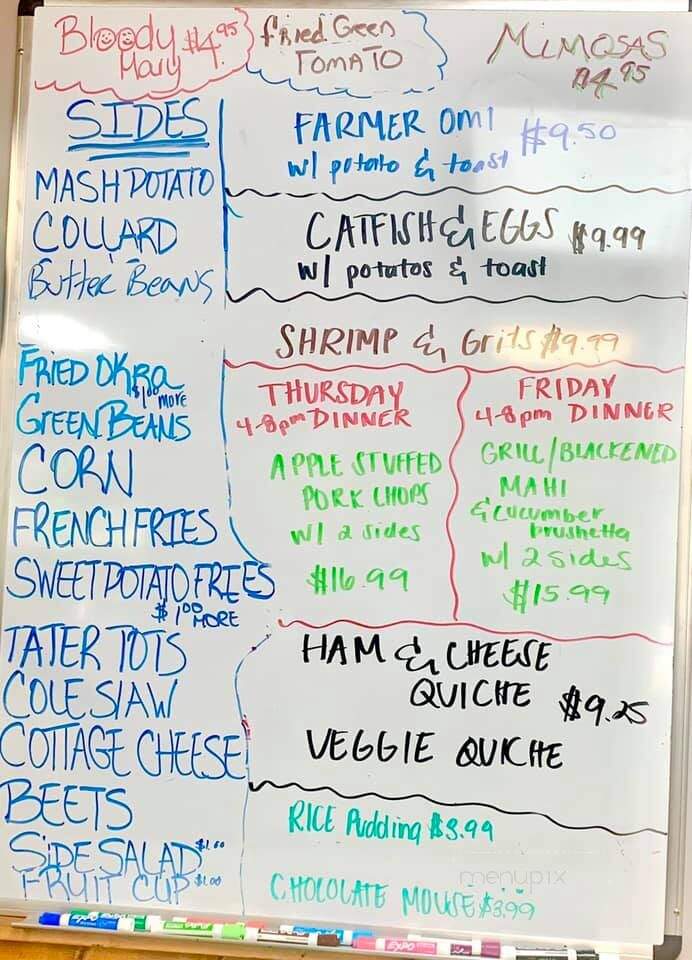 Bloody Mary $4.95
Fried Green
TOMATO
MIMOSAS
$4.95
SIDES
MASH POTATO
COLLARD
Butter Beans
FRIED OKRA
$1.00 MORE
GREEN BEANS
CORN
FRENCH FRIES
SWEET POTATO FRIES
$1.00 MORE
TATER TOTS
COLE SLAW
COTTAGE CHEESE
BEETS
SIDE SALAD $1.00
FRUIT CUP $1.00
FARMER OML $9.50
w/ potato & toast
CATFISH & EGGS $9.99
w/ potatos & toast
SHRIMP & Grits $9.99
THURSDAY
4-8pm DINNER
APPLE STUFFED
PORK CHOPS
w/ 2 sides
$16.99
FRIDAY
4-8pm DINNER
GRILL/BLACKENED
MAHI
& cucumber
brushetta
w/ 2 sides
$15.99
HAM & CHEESE
QUICHE $9.25
VEGGIE QUICHE
RICE Pudding $3.99
CHOCOLATE MOUSE $3.99
menupix
EXPO